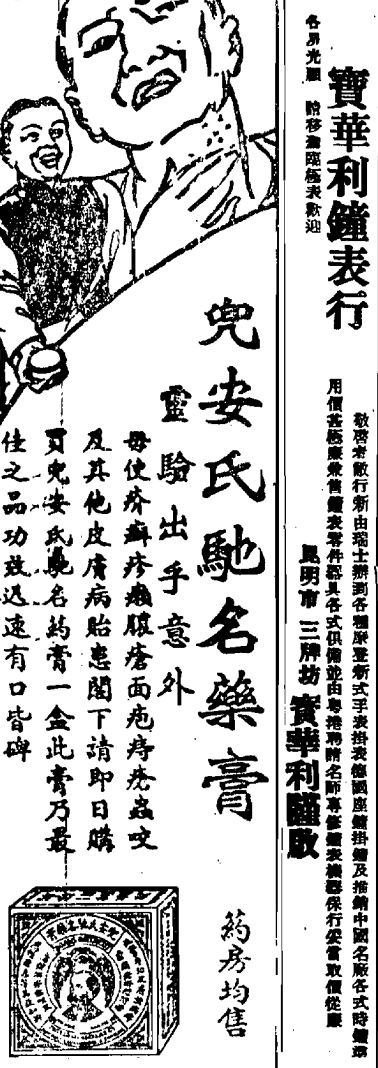 寶華利鐘表行
各界光顧 請移玉臨極表歡迎
敬啓者敝行新由瑞士辦到各種摩登新式手表掛表德國座鐘掛鐘及推銷中國名廠各式時鐘
用價甚極廉兼售鐘表零件器具各式俱備並由粵港聘請名師專修鐘表機器保行妥當取價從廉
昆明市 三牌坊 寶華利謹啟
兜安氏馳名藥膏
靈驗出乎意外
毋使疥癬疹癩腺瘡面疱痔瘡蟲咬
及其他皮膚病貽患閣下請即日購
買兜安氏馳名葯膏一盒此膏乃最
佳之品功效迅速有口皆碑
葯房均售